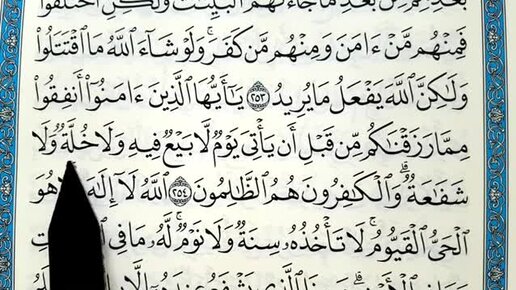 بَعْدِهِم مِّنۢ بَعْدِ مَا جَآءَتْهُمُ ٱلْبَيِّنَٰتُ وَلَٰكِنِ ٱخْتَلَفُوا۟
فَمِنْهُم مَّنْ ءَامَنَ وَمِنْهُم مَّن كَفَرَ ۚ وَلَوْ شَآءَ ٱللَّهُ مَا ٱقْتَتَلُوا۟
وَلَٰكِنَّ ٱللَّهَ يَفْعَلُ مَا يُرِيدُ ٢٥٣ يَٰٓأَيُّهَا ٱلَّذِينَ ءَامَنُوٓا۟ أَنفِقُوا۟
مِمَّا رَزَقْنَٰكُم مِّن قَبْلِ أَن يَأْتِىَ يَوْمٌ لَّا بَيْعٌ فِيهِ وَلَا خُلَّةٌ وَلَا
شَفَٰعَةٌ ۗ وَٱلْكَٰفِرُونَ هُمُ ٱلظَّٰلِمُونَ ٢٥٤ ٱللَّهُ لَآ إِلَٰهَ هُوَ
ٱلْحَىُّ ٱلْقَيُّومُ ۚ لَا تَأْخُذُهُۥ سِنَةٌ وَلَا نَوْمٌ ۚ لَّهُۥ مَا فِى